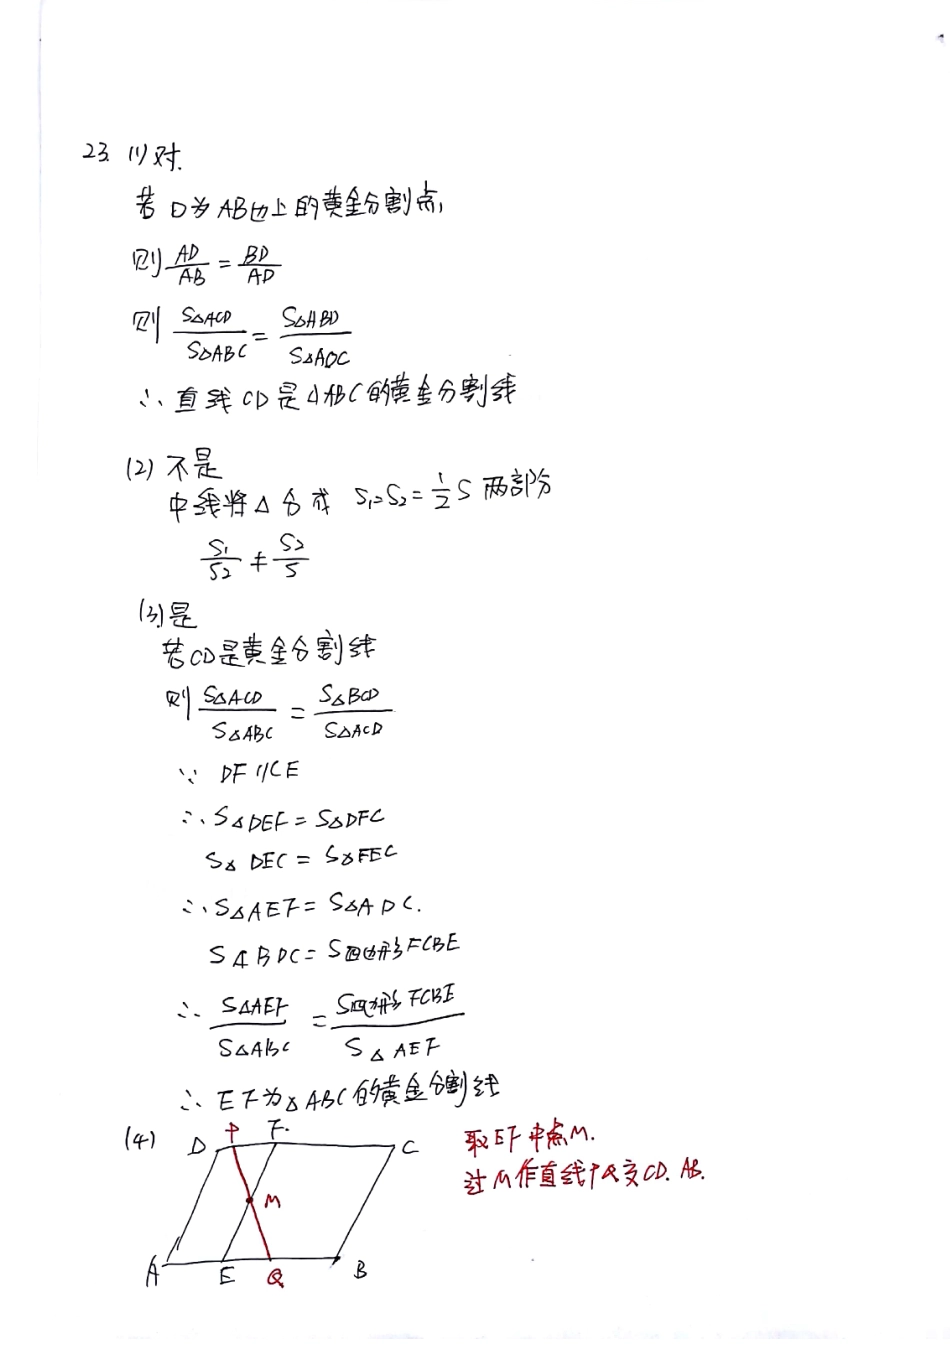 23. (1) 对.
若 D为 AB边上的黄金分割点,
则 AD/AB = BD/AD
则 S△ACD/S△ABC = S△HBD/S△ADC
∴ 直线 CD 是 △ABC 的黄金分割线
(2) 不是
中线将 △ 分成 S₁=S₂=1/2 S 两部分
S₁/S₂ ≠ S₂/S
(3) 是
若CD是黄金分割线
则 S△ACD/S△ABC = S△BCD/S△ACD
∵ DF∥CE
∴ S△DEF = S△DFC
S△DEC = S△FEC
∴ S△AEF = S△ADC.
S△BDC = S四边形FCBE
∴ S△AEF/S△ABC = S四边形FCBE/S△AEF
∴ EF为△ABC的黄金分割线
(4) D P F C
取EF中点M.
过M作直线PQ交CD. AB.
M
A E Q B